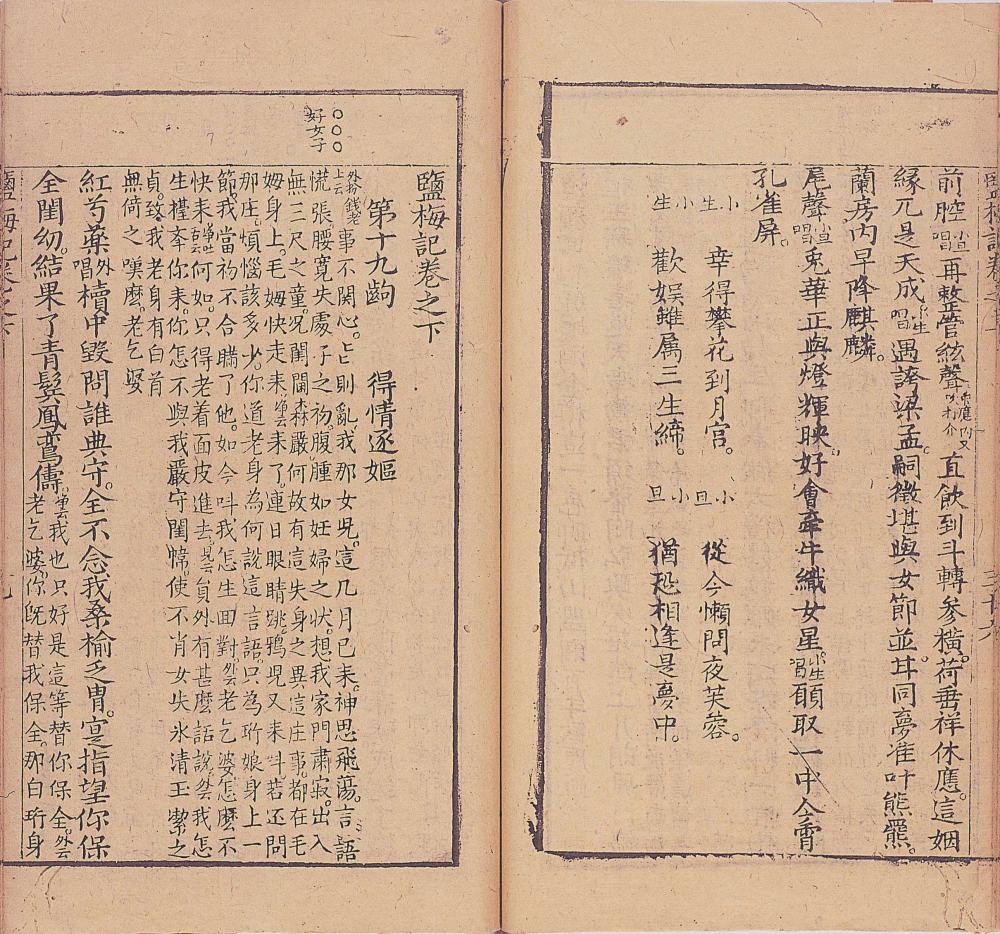 前腔旦唱再整管絃聲直飲到斗轉參橫。荷垂祥休應。這姻
緣兀是天成小生唱遇誇梁孟。嗣徵堪與女節並。耳同夢准叶熊羆。
蘭房內早降麒麟。
尾聲旦唱兎華正與燈輝映。好會牽牛織女星。小生唱願取一中今霄
孔雀屏。
小生 幸得攀花到月宮。 小旦 從今懶問夜芙蓉。
小生 歡娛雖属三生締。 小旦 猶恐相逢是夢中。
鹽梅記卷之下
第十九齣 得情逐嫗
外扮錢老上云事不關心。心上則亂。我那女児。這几月已来。神思飛蕩。言語
慌張。腰寬失處子之初。腹腫如妊婦之状。想我家門肅寂。出入
無三尺之童。况閨闥森嚴。何故有這失身之異。這庄事。都在毛
姆身上。毛姆快走来。淨云来了。連日眼睛跳。鴉児又来呌。若还問
那庄。煩惱該多少。你道老身為何說這言語。只為珩娘身上一
節。我當初不合瞞了他。如今呌我怎生回對。外云老乞婆怎麽不
快来。淨背云何如。只得老着面皮進去。見云員外有甚麽話說。外云我怎
生擡奉你来。你怎不與我嚴守閨幃。使不肖女失氷清玉潔之
貞。致我老身有白首
無倚之嘆麽。老乞婆
〇〇〇
好女子
紅芍藥外唱櫝中毀問誰典守。全不念我桑榆乏胄。寔指望你保
全閨幼。結果了青鬂鳳鸞儔。淨云我也只好是這等替你保全。外云
老乞婆。你旣替我保全。那白珩身